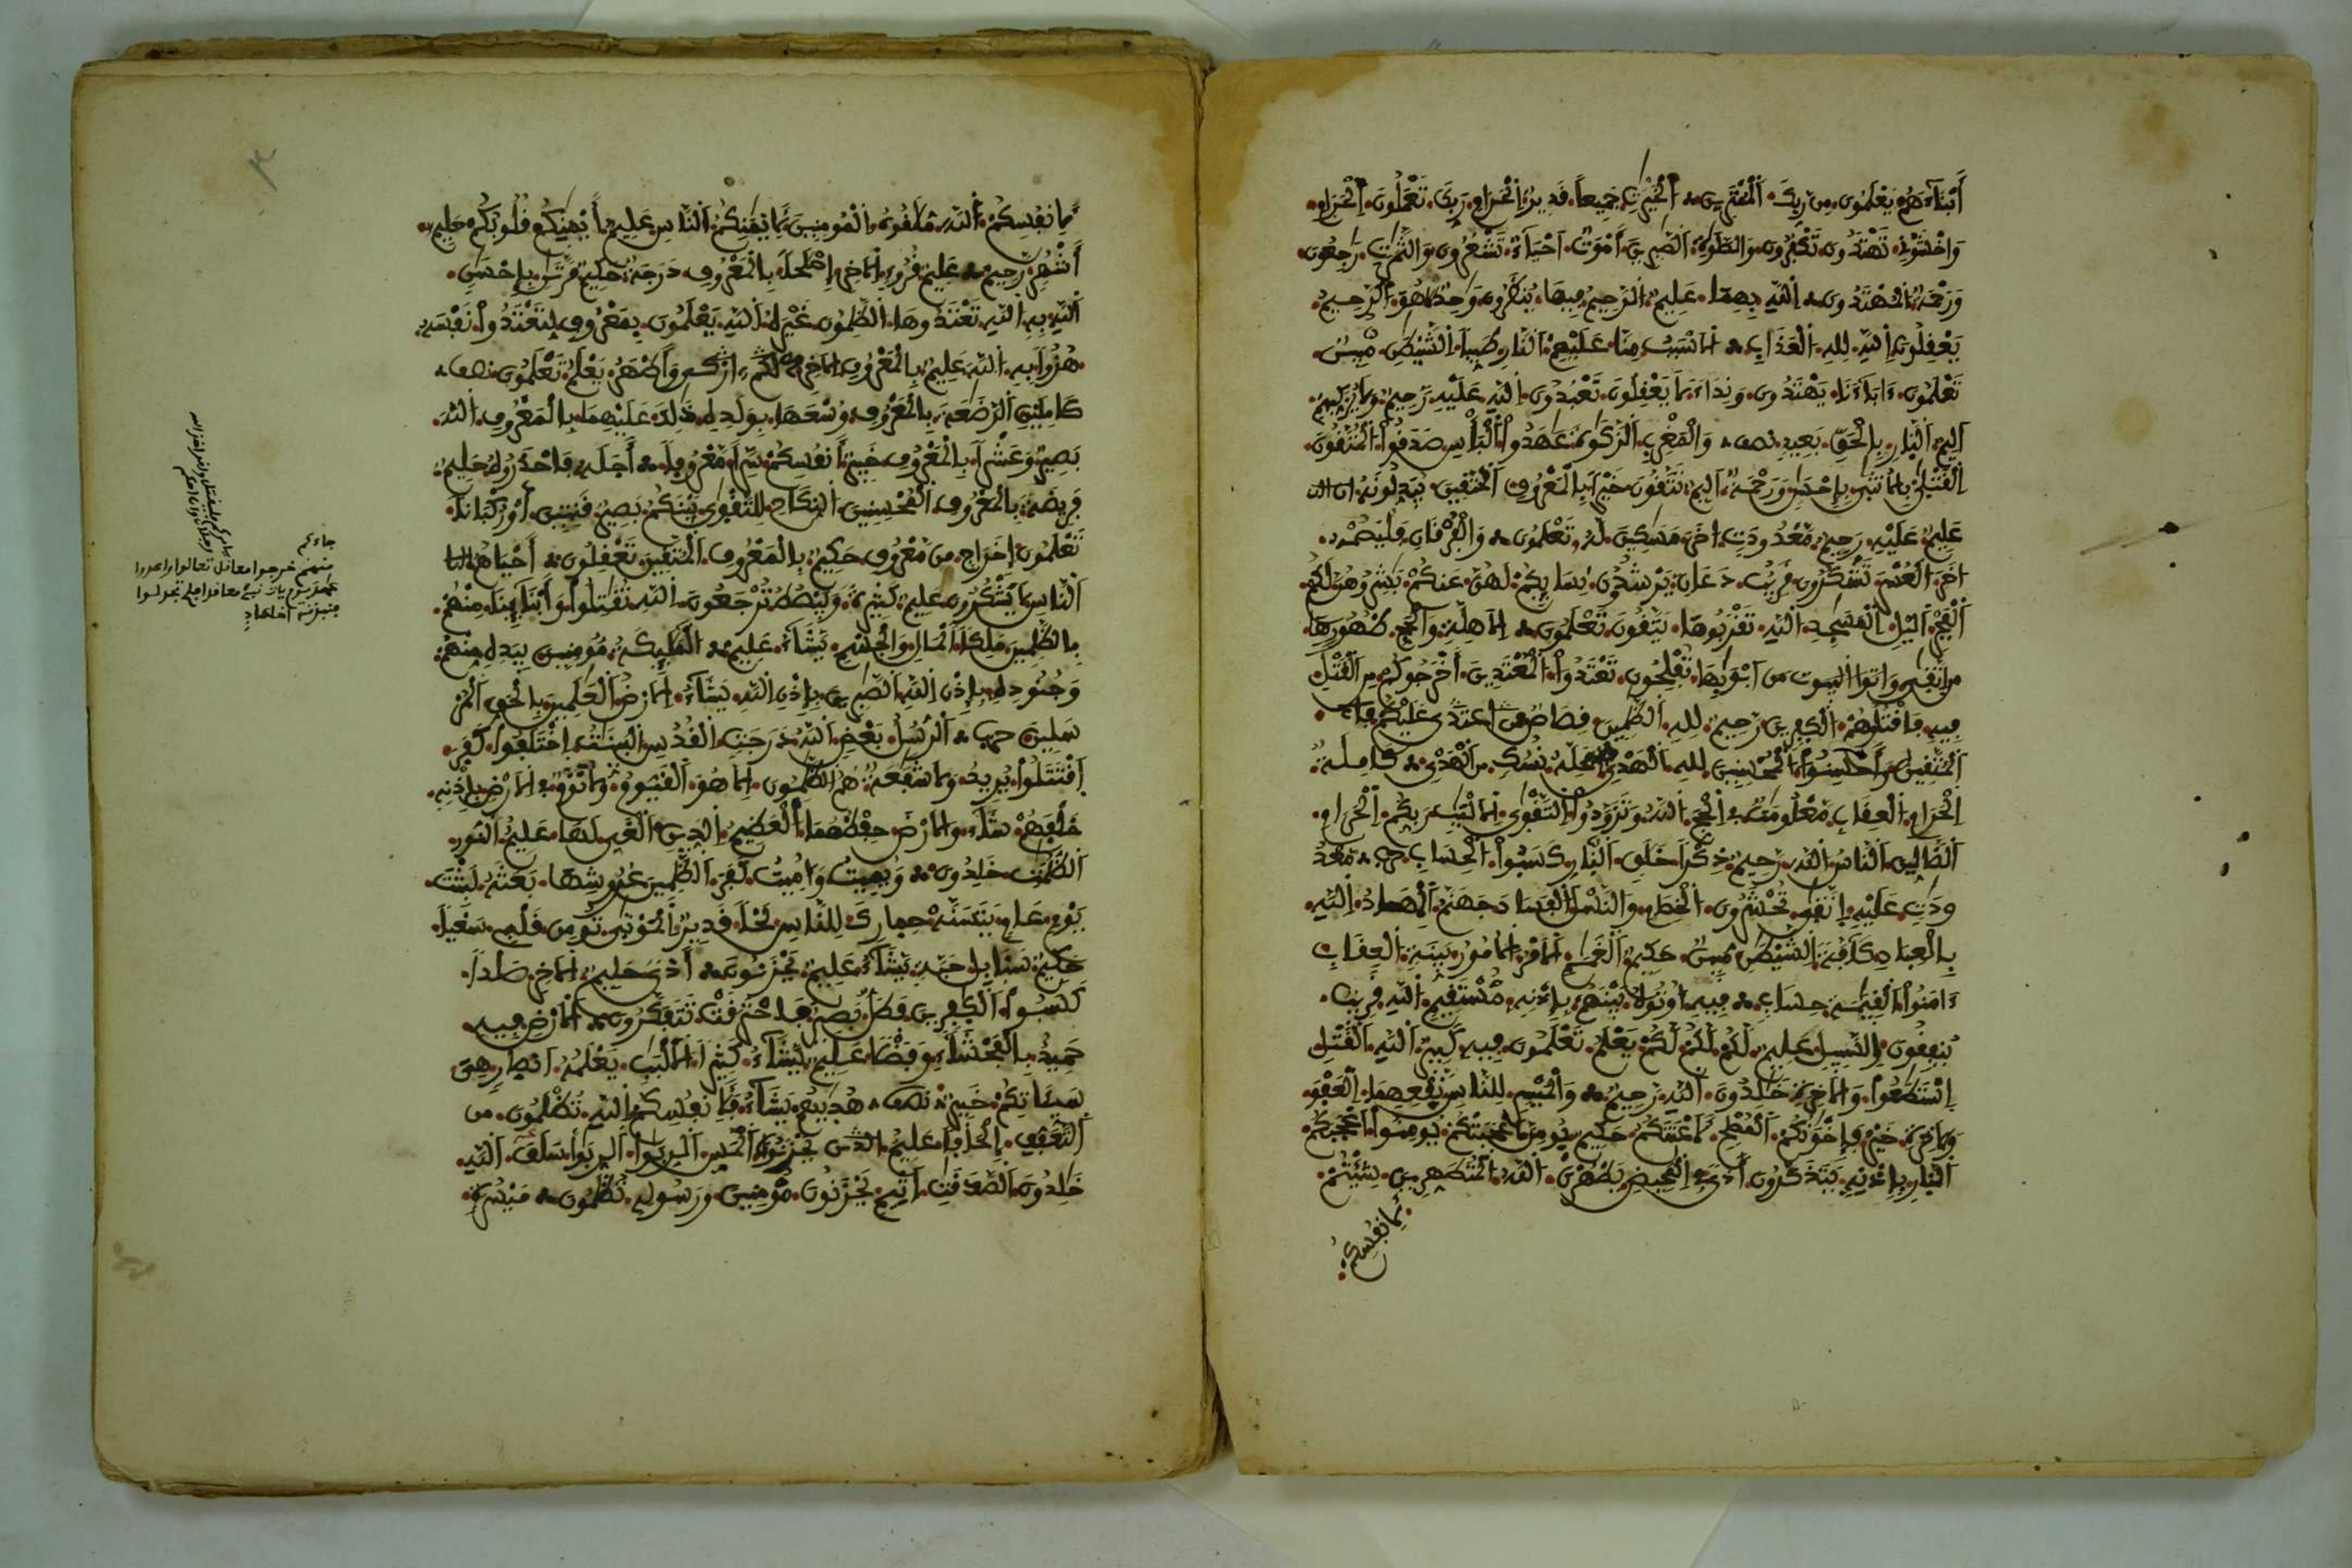 أَبْنَاءَهُمْ يعلمون من ربك الممترين الخيرت جميعا قدير الحرام ربك تعملون الحرام
واخشونے تهتدون تكفرون والصلوة الصبرين اموت احياء تشعرون والثمرت رجعون
ورحمة المهتدون الله بهما عليم الرحيم فيها ينظرون وحد هو الرحيم
يعقلون الله لله العذاب الاسبب منا عليهم النار طيبا الشيطن مبين
تعلمون ءاباءنا يهتدون ونداء لا يعقلون تعبدون الله عليه رحيم ولا يزكيهم
اليم النار بالحق بعيد نصف والمغرب الزكوة عهدوا البأس صدقوا المتقون
القتلى بالانثى بإحسن ورحمة اليم تتقون خيرا بالمعروف المتقين يبدلونه ان الله
عليم عليه رحيم معدودت اخر مسكين له تعلمون والفرقان فليصمه
اخر العسر تشكرون قريب دعان يرشدون نسايكم لهن عنكم بشروهن لكم
الفجر اليل المسجد الله تقربوها يتقون تعلمون الاهلة والحج ظهورها
من اتقى واتوا البيوت من ابوبها تفلحون تعتدوا المعتدين اخرجوكم من القتل
فيه فاقتلوهم الكفرين رحيم لله الظلمين قصاص اعتدى عليكم
المتقين وأحسنوا المحسنين لله الهدي محله نسك من الهدي كاملة
الحرام العقاب معلومت في الحج الله وتزودوا التقوى الالبب ربكم الحرام
الضالين الناس الله رحيم ذكرا خلق النار كسبوا الحساب حزب معد
ودت عليه اتقى تحشرون الخصام والنسل الفساد جهنم المهاد الله
بالعباد كافة الشيطن مبين حكيم الغمم الامر الامور بينة العقاب
ءامنوا القيمة حساب فيه اوتوه بينهم بإذنه مستقيم الله قريب
ينفقون السبيل عليم لكم لكم لكم يعلم تعلمون فيه كبير الله القتل
استطعوا والاخرة خلدون الله رحيم والميسر للناس نفعهما العفو
والاخرة خير فإخونكم المصلح لأعنتكم حكيم يومن أعجبتكم يومنوا أعجبكم
النار بإذنه يتذكرون أذى المحيض يطهرن الله المتطهرين شئتم
لأنفسكم
لأنفسكم الله ملقوه المومنين لأيمنكم الناس عليم أيمنكم قلوبكم حليم
أشهر رحيم عليم قروء الاخر إصلحا بالمعروف درجة حكيم مرتن بإحسن
الله به الله تعتدوها الظلمون غيره الله يعلمون بمعروف لتعتدوا نفسه
هزوا به الله عليم بالمعروف الاخر لكم أزكى وأطهر يعلم تعلمون نصف
كاملين الرضعة بالمعروف وسعها بولده ذلك عليهما بالمعروف الله
بصير وعشرا بالمعروف خبير أنفسكم سرا معروفا أجله فاحذروه حليم
فريضة بالمعروف المحسنين النكاح للتقوى بينكم بصير قنتين أو ركبانا
تعلمون إخراج من معروف حكيم بالمعروف المتقين تعقلون أحياهم
الناس لا يشكرون عليم كثيرة ويبصط ترجعون الله نقتلوا وأبنائنا منهم
بالظلمين ملكا المال والجسم يشاء عليم المليكة مومنين بيده منهم
وجنوده بإذن الله الصبرين بإذن الله يشاء الارض العلمين بالحق لمن
المرسلين حزب الرسل بعض الله درجت القدس البينت اختلفوا كفر
اقتتلوا يريد ولا شفعة هم الظلمون الا هو القيوم ولا نوم الارض بإذنه
خلفهم شاء والارض حفظهما العظيم الدين الغي لها عليم النور
الظلمت خلدون ويميت وأميت كفر الظلمين عروشها بعثه لبثت
يوم عام يتسنه حمارك للناس لحما قدير الموتى تومن قلبي سعيا
حكيم سنابل حبة يشاء عليم يحزنون أذى حليم الاخر صلدا
كسبوا الكفرين فطل بصير فاحترقت تتفكرون الارض فيه
حميد بالفحشاء وفضلا عليم يشاء كثيرا الالبب يعلمه انصار هي
سيئاتكم خبير نصف هديهم يشاء فلأنفسكم الله تظلمون من
التعفف إلحافا عليم الذين يحزنون المس الربوا الربوا سلف الله
خلدون الصدقت أثيم يحزنون مومنين ورسوله تظلمون ميسرة